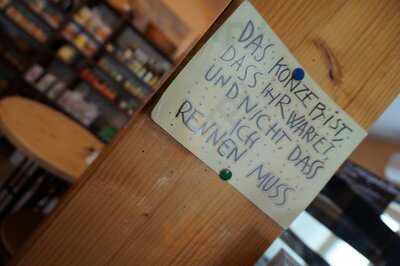 DAS KONZEPT IST,
DASS IHR WARTET
UND NICHT DASS
ICH
RENNEN MUSS